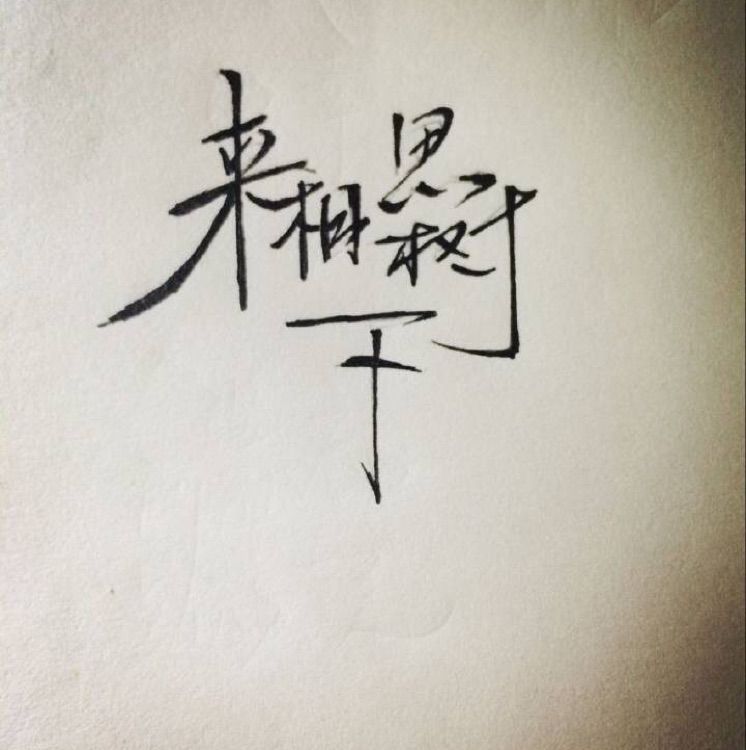 来相思树
下